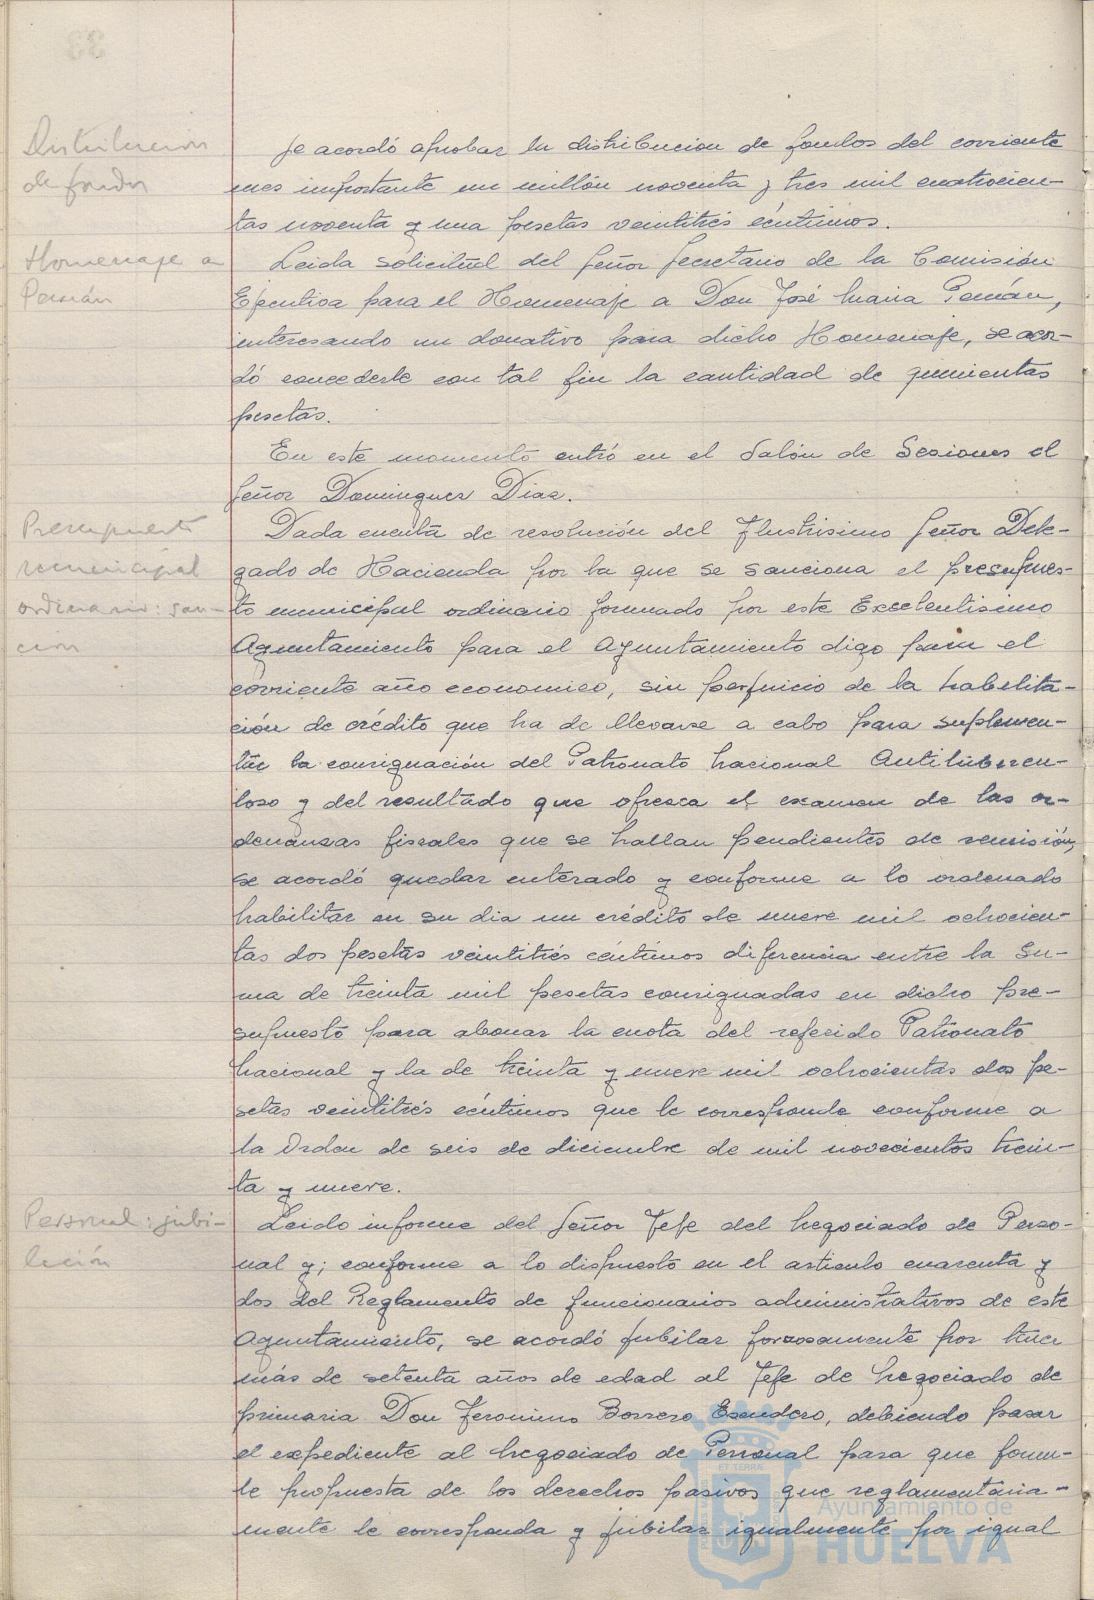 Distribución
de fondos
Se acordó aprobar la distribucion de fondos del corriente
mes importante un millón noventa y tres mil cuatrocien-
tas noventa y una pesetas veintitrés céntimos.
Homenaje a
Pemán
Leida solicitud del Señor Secretario de la Comisión
Ejecutiva para el Homenaje a Don José Maria Pemán,
interesando un donativo para dicho Homenaje, se acor-
dó concederle con tal fin la cantidad de quinientas
pesetas.
En este momento entró en el Salón de Sesiones el
Señor Dominguez Diaz.
Presupuesto
municipal
ordinario: san-
ción
Dada cuenta de resolución del Ilustrisimo Señor Dele-
gado de Hacienda por la que se sanciona el presupues-
to municipal ordinario formado por este Excelentisimo
Ayuntamiento para el Ayuntamiento digo para el
corriente año economico, sin perjuicio de la habilita-
ción de crédito que ha de llevarse a cabo para suplemen-
tar la consignación del Patronato Nacional Antitubercu-
loso y del resultado que ofresca el examen de las or-
denanzas fiscales que se hallan pendientes de remisión,
se acordó quedar enterado y conforme a lo ordenado
habilitar en su dia un crédito de nueve mil ochocien-
tas dos pesetas veintitrés céntimos diferencia entre la su-
ma de treinta mil pesetas consignadas en dicho pre-
supuesto para abonar la cuota del referido Patronato
Nacional y la de treinta y nueve mil ochocientas dos pe-
setas veintitrés céntimos que le corresponde conforme a
la Orden de seis de diciembre de mil novecientos trein-
ta y nueve.
Personal: jubi-
lación
Leido informe del Señor Jefe del Negociado de Perso-
nal y; conforme a lo dispuesto en el articulo cuarenta y
dos del Reglamento de funcionarios administrativos de este
Ayuntamiento, se acordó jubilar forzosamente por tener
más de setenta años de edad al Jefe de Negociado de
primaria Don Jeronimo Borrero Escudero, debiendo pasar
el expediente al Negociado de Personal para que formu-
le propuesta de los derechos pasivos que reglamentaria-
mente le corresponda y jubilar igualmente por igual
Ayuntamiento de
HUELVA